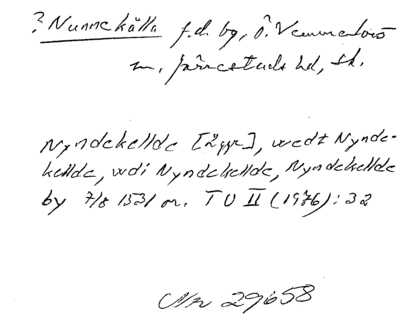 ? Nunnekälla f.d. by, Ö. Vemmenlövs
sn, Järrestads hd, Sk.
Nyndekellde [2 ggr], wedt Nynde-
kellde, wdi Nyndekellde, Nyndekellde
by 7/8 1531 or. TU II (1976): 32
Nr 29658